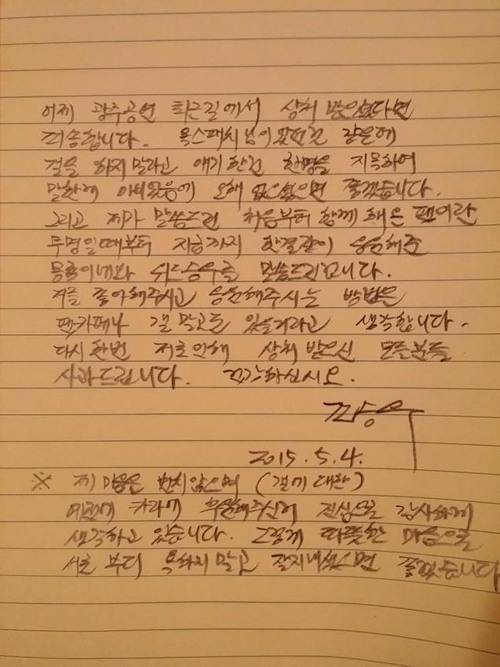 어제 광주공연 퇴근길에서 상처 받으셨다면
죄송합니다. 욕스패치님이 갔던건 같은데
걸을 하지말라고 얘기한건 한명을 지목하여
말한게 아니었음에 오해 없으셨으면 좋겠습니다.
그리고 제가 말씀드린 처음부터 함께 해온 팬이란
무명일때부터 지금까지 한결같이 응원해준
말씀드린겁니다.
저를 좋아해주시고 응원해주시는 방법은
팬카페나 갤 말고도 있을거라고 생각합니다.
다시한번 저로인해 상처 받으신 모든분들
사과드립니다. 건강하십시오.
2015. 5. 4.
※ 제 마음은 변치않으며 (갤에 대한)
예전에 카라멜 주신게 진심으로 감사하게
생각하고 있습니다. 그렇게 따뜻한 마음으로
서로 부디 욕하지 말고 잘지내셨으면 좋겠습니다